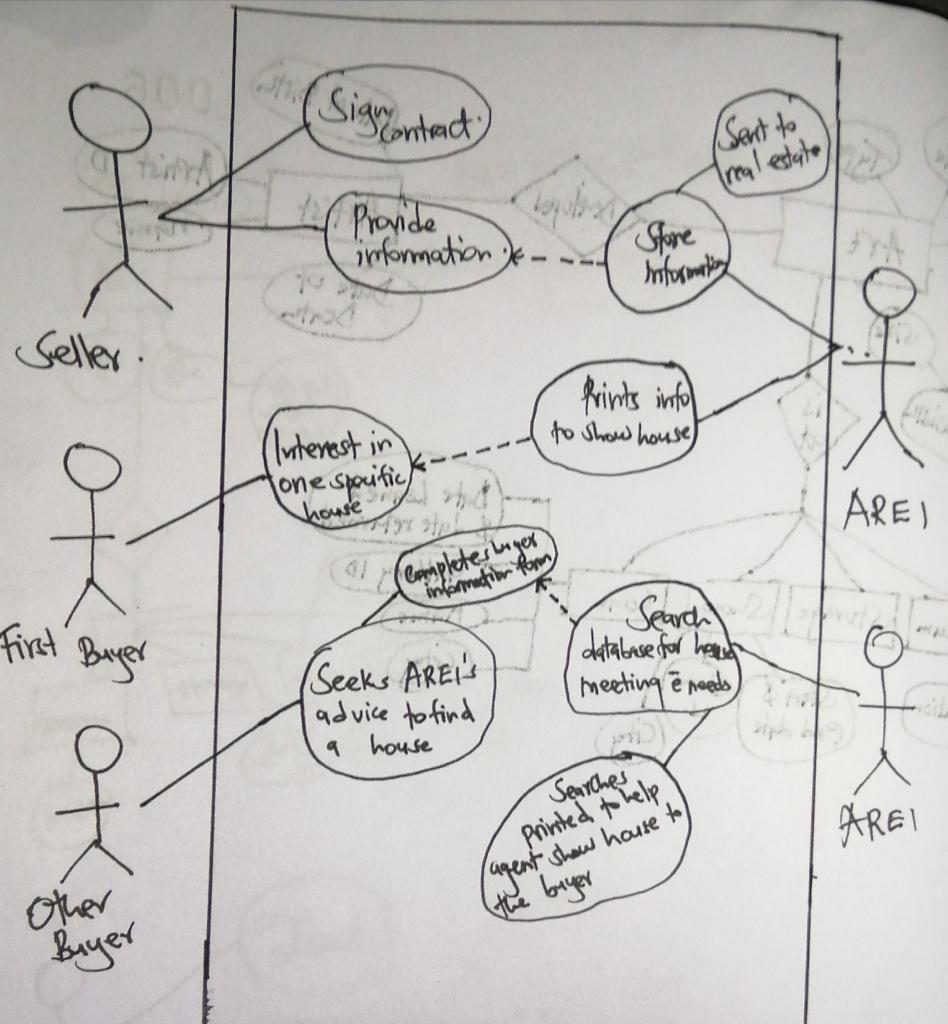 Sign
Contract.
Sent to
real estate
Provide
information.
Store
Information
Seller.
Prints info
to show house
Interest in
one specific
house
AREI
Completes buyer
information form
First Buyer
Search
database for house
meeting ē needs
Seeks AREI's
advice to find
a house
Searches
printed to help
agent show house to
the buyer
AREI
Other
Buyer